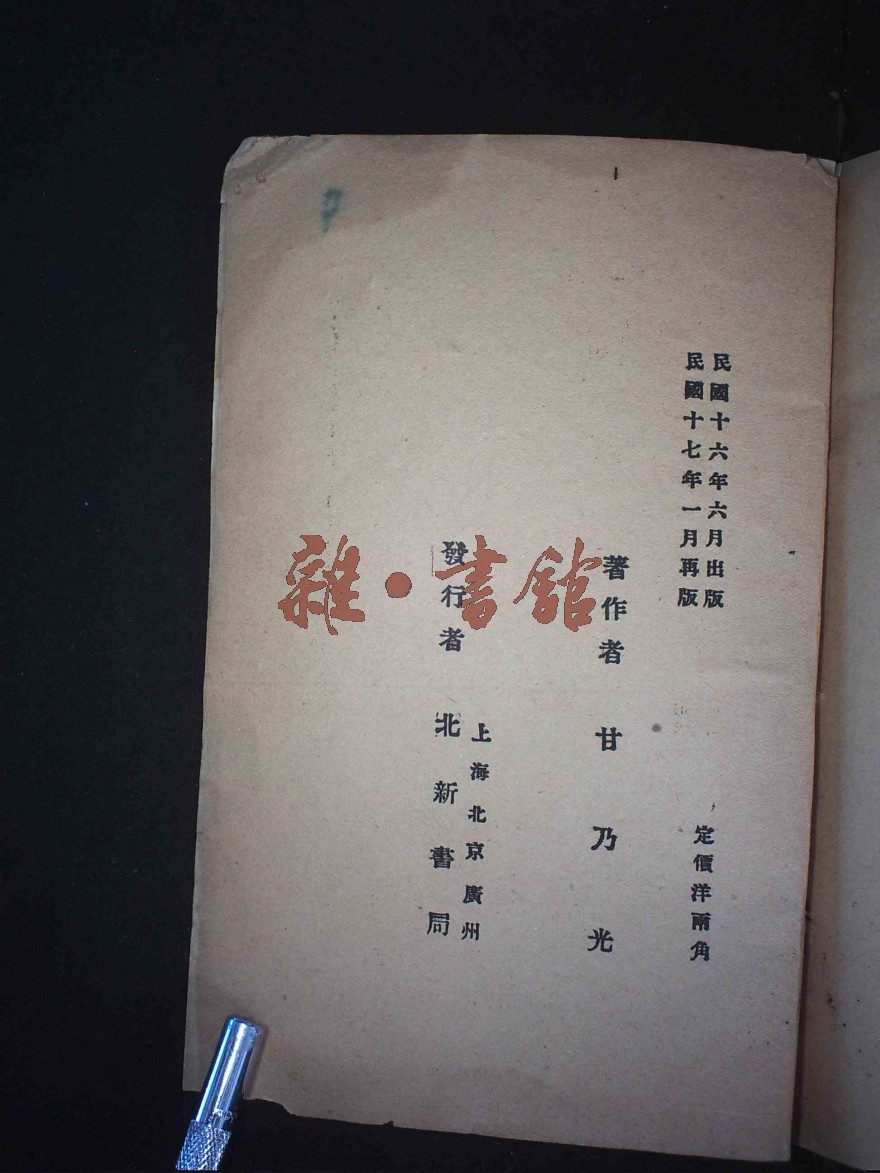 民國十六年六月出版
民國十七年一月再版
定價洋兩角
著作者 甘乃光
上海北京廣州
發行者 北新書局
雜·書館